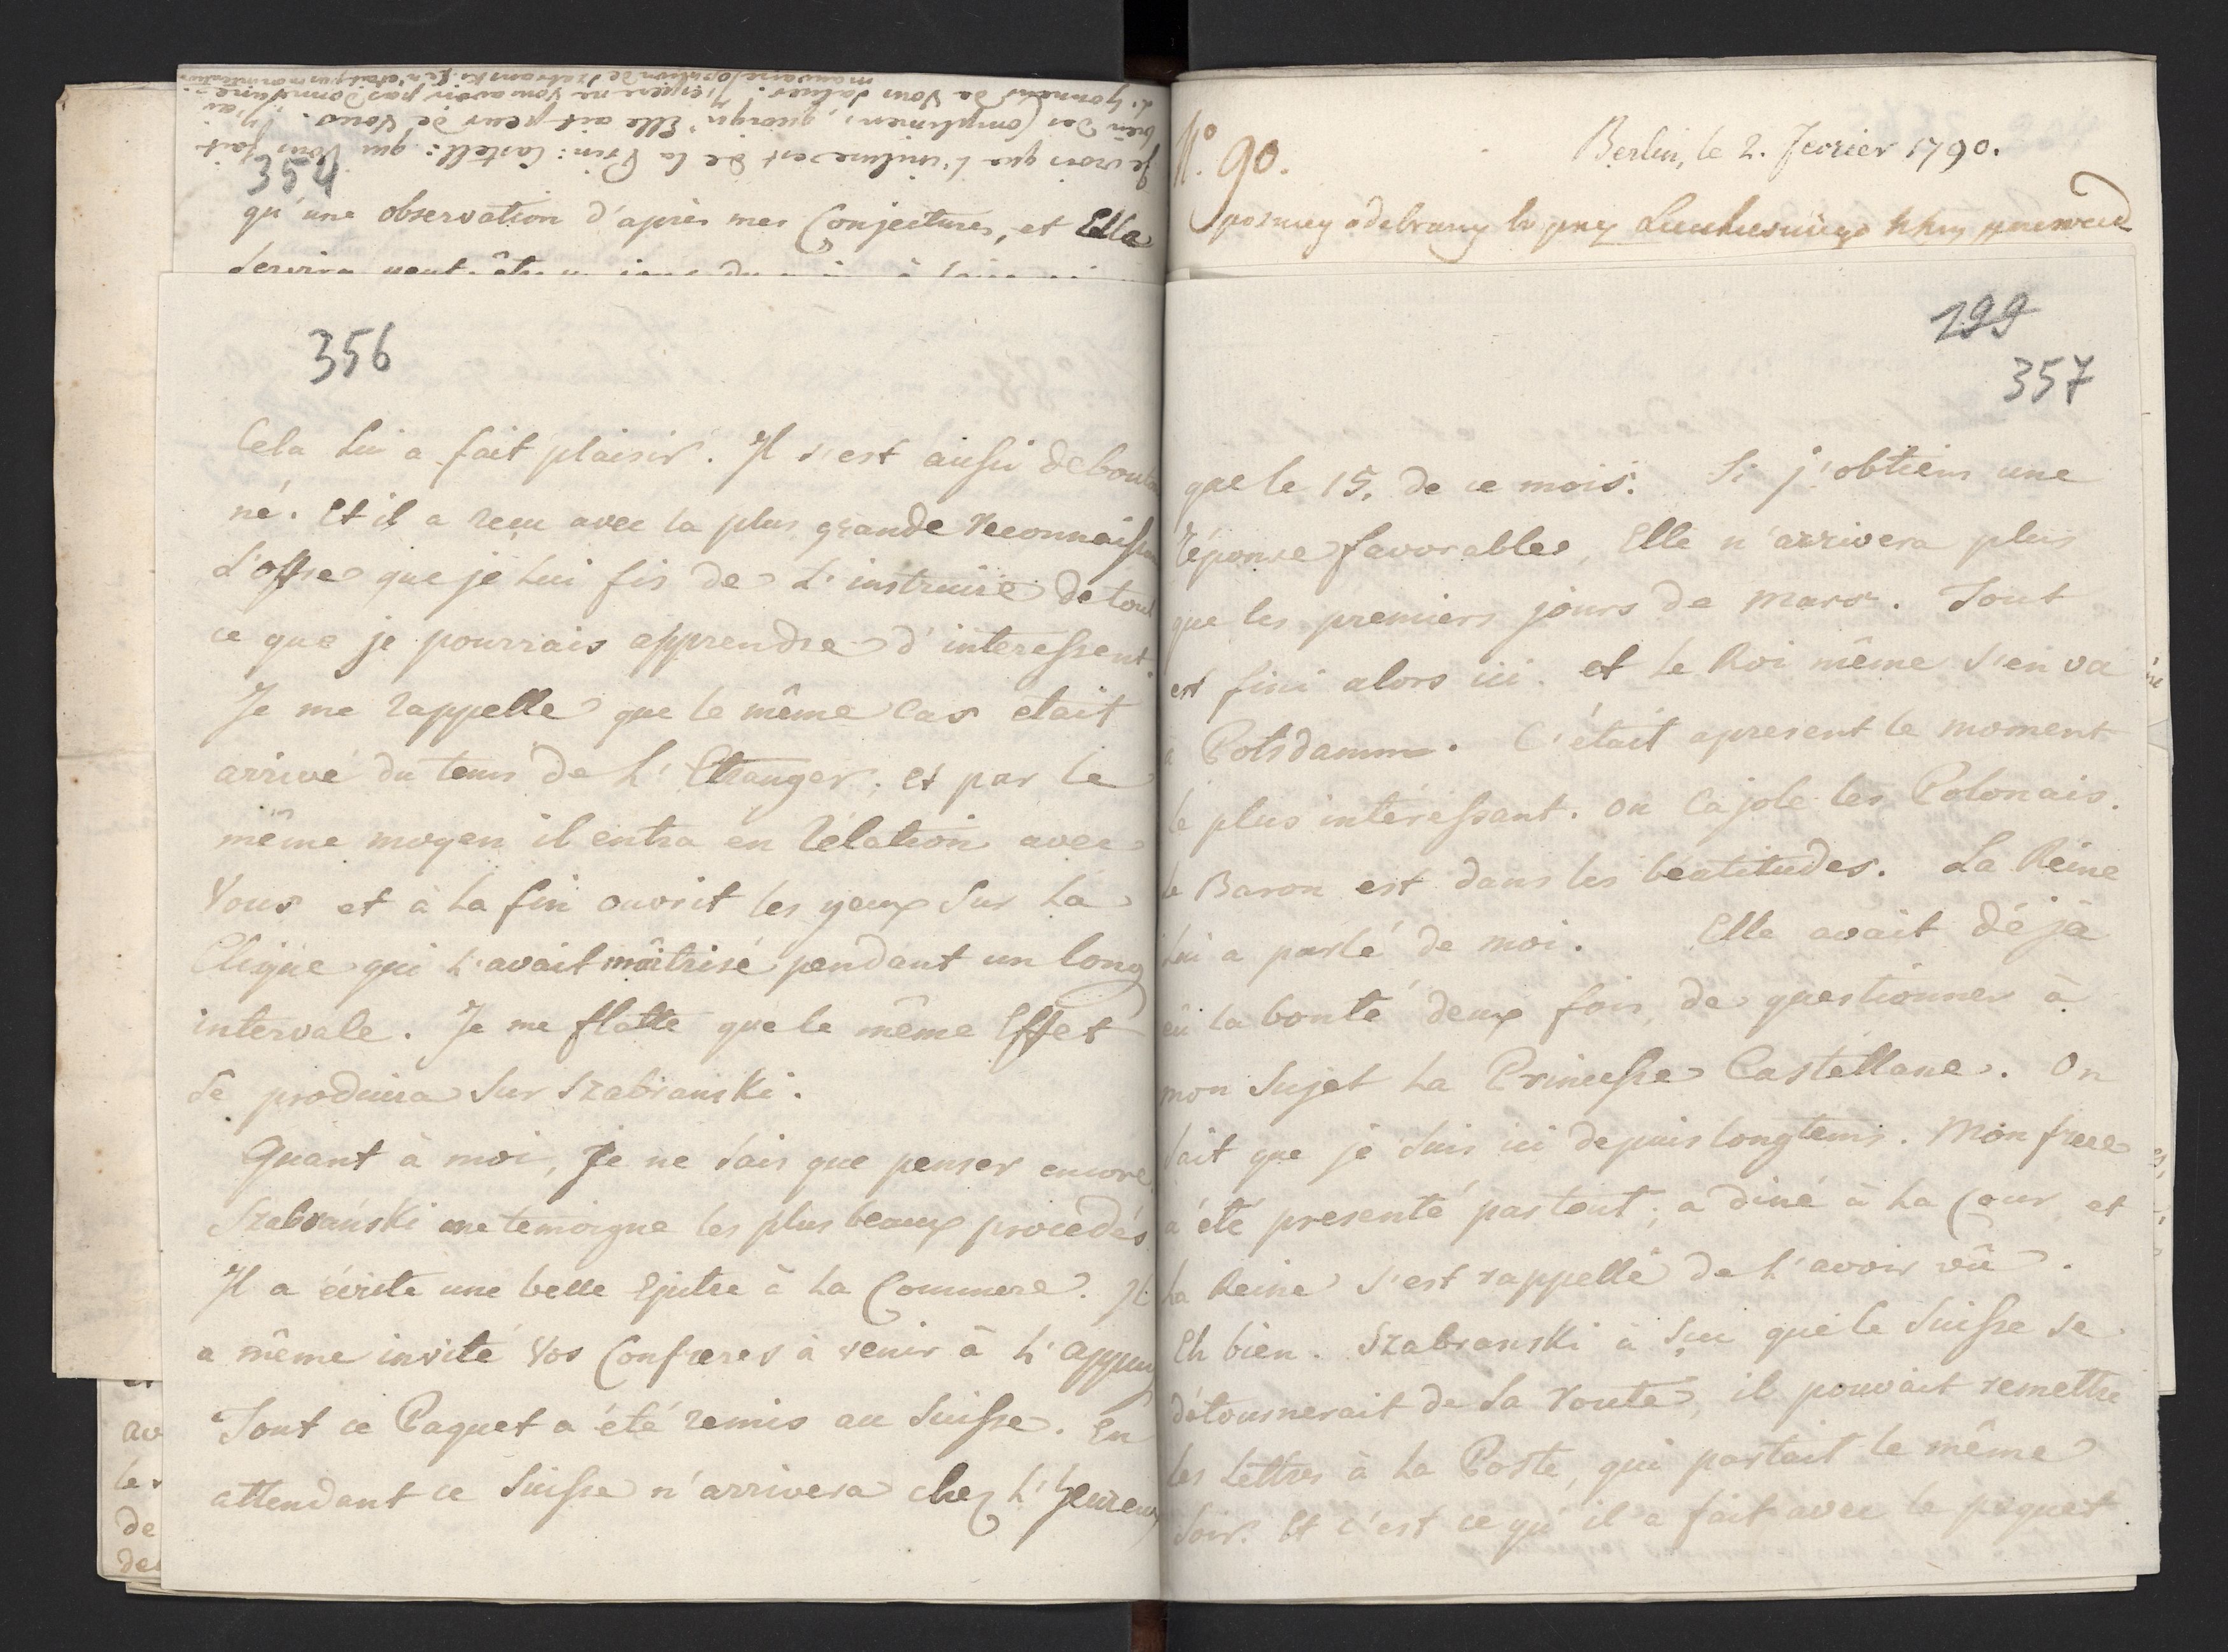 354
qu'une observation d'après mes Conjectures, et Elle
Je crois que l'inclus est de la Prin: Castell: qui Vous fait
bien des Complimens, quoiqu'Elle ait peur de Vous. J'ai
L'honneur de Vous saluer. J'espere ne Vous avoir pas donné une
mauvaise opinion de Szabranski
N.º 90.
Berlin, le 2. Fevrier 1790.
356
Cela lui a fait plaisir. Il s'est aussi debouton
né. Et il a reçu avec la plus grande reconnaissan
l'offre que je Lui fis de L'instruire de tout
ce que je pourrais apprendre d'interessent.
Je me rappelle que le même cas etait
arrivé du tems de L'Etranger; et par le
même moyen il entra en rélation avec
Vous et à la fin ouvrit les yeux sur la
Clique qui L'avait mâitrisé pendant un long
intervale. Je me flatte que le même Effet
se produira sur Szabranski.
Quant à moi, je ne sais que penser encore.
Szabrański me temoigne les plus beaux procedés
Il a écrite une belle Epitre à la Commere. Il
a même invité Vos Confreres à venir à L'appuy
Tout ce Paquet a été remis au Suisse. En
attendant ce Suisse n'arrivera chez L'heureux
199
357
que le 15. de ce mois. Si j'obtiens une
réponse favorable, Elle n'arrivera plus
que les premiers jours de mars. Tout
est fini alors ici. et le Roi même s'en va
à Potsdamm. C'était apresent le moment
le plus intéressant. on cajole les Polonais.
le Baron est dans les béatitudes. La Reine
Lui a parlé de moi. Elle avait déjà
eû la bonté deux fois de questionner à
mon Sujet la Princesse Castellane. On
sait que je suis ici depuis longtems. Mon frere
a été presenté partout; a diné à la Cour et
la Reine s'est rappellé de L'avoir vû.
Eh bien. Szabranski a sçu que le Suisse se
détournerait de sa route, il pouvait remettre
les Lettres à la Poste, qui partait le même
soir. Et c'est ce qu'il a fait avec le paquet